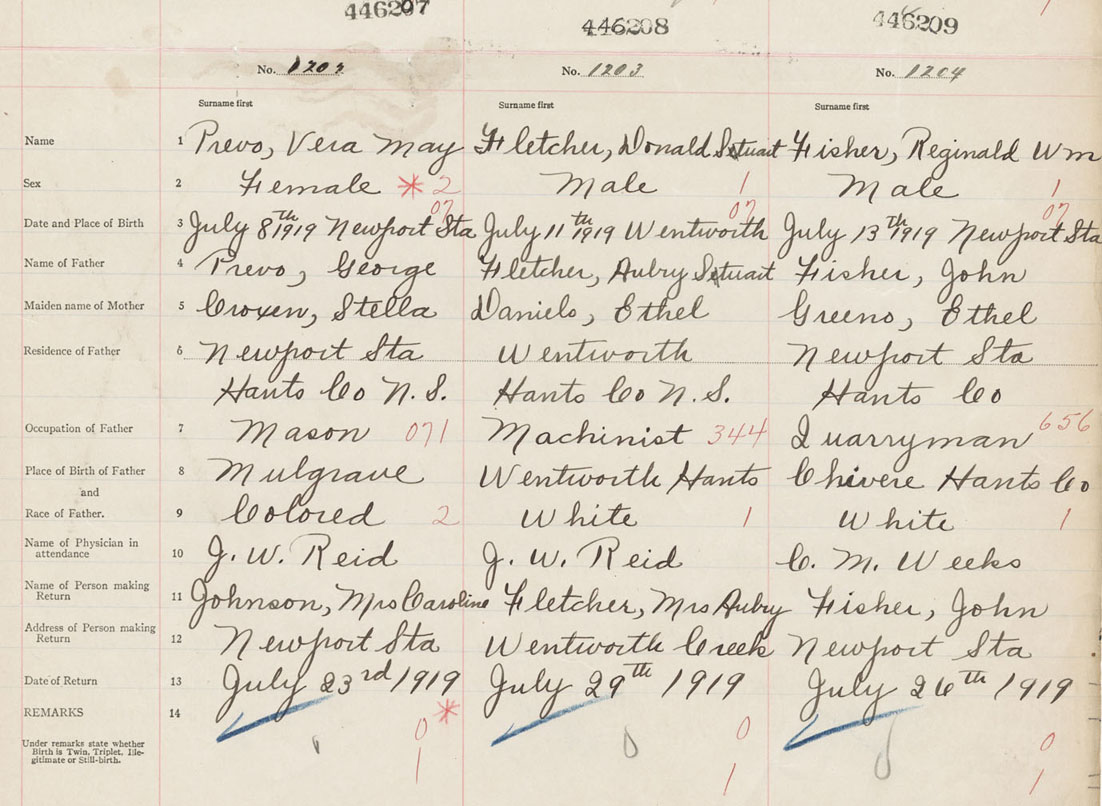 446207 446208 446209
No. 1202 No. 1203 No. 1204
Surname first Surname first Surname first
Name 1 Prevo, Vera May Fletcher, Donald Stuart Fisher, Reginald Wm
Sex 2 Female * 2 Male 1 Male 1
07 07 07
Date and Place of Birth 3 July 8th 1919 Newport Sta July 11th 1919 Wentworth July 13th 1919 Newport Sta
Name of Father 4 Prevo, George Fletcher, Aubry Stuart Fisher, John
Maiden name of Mother 5 Croxen, Stella Daniels, Ethel Greeno, Ethel
Residence of Father 6 Newport Sta Wentworth Newport Sta
Hants Co N.S. Hants Co N.S. Hants Co
Occupation of Father 7 Mason 071 Machinist 344 Quarryman 656
Place of Birth of Father 8 Mulgrave Wentworth Hants Chivere Hants Co
and
Race of Father. 9 Colored 2 White 1 White 1
Name of Physician in
attendance 10 J. W. Reid J. W. Reid C. M. Weeks
Name of Person making
Return 11 Johnson, Mrs Caroline Fletcher, Mrs Aubry Fisher, John
Address of Person making
Return 12 Newport Sta Wentworth Creek Newport Sta
Date of Return 13 July 23rd 1919 July 29th 1919 July 26th 1919
REMARKS 14 *
0 0 0
Under remarks state whether
Birth is Twin, Triplet, Ille-
gitimate or Still-birth.
1 1 1